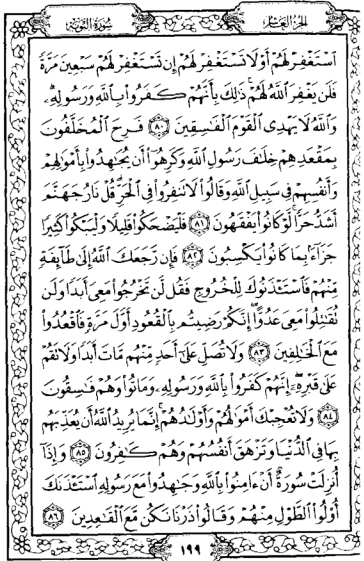 الجزء العاشر
سورة التوبة
ٱسْتَغْفِرْ لَهُمْ أَوْ لَا تَسْتَغْفِرْ لَهُمْ إِن تَسْتَغْفِرْ لَهُمْ سَبْعِينَ مَرَّةً
فَلَن يَغْفِرَ ٱللَّهُ لَهُمْ ۚ ذَٰلِكَ بِأَنَّهُمْ كَفَرُوا۟ بِٱللَّهِ وَرَسُولِهِۦ ۗ
وَٱللَّهُ لَا يَهْدِى ٱلْقَوْمَ ٱلْفَٰسِقِينَ ٨٠ فَرِحَ ٱلْمُخَلَّفُونَ
بِمَقْعَدِهِمْ خِلَٰفَ رَسُولِ ٱللَّهِ وَكَرِهُوٓا۟ أَن يُجَٰهِدُوا۟ بِأَمْوَٰلِهِمْ
وَأَنفُسِهِمْ فِى سَبِيلِ ٱللَّهِ وَقَالُوا۟ لَا تَنفِرُوا۟ فِى ٱلْحَرِّ ۗ قُلْ نَارُ جَهَنَّمَ
أَشَدُّ حَرًّا ۚ لَّوْ كَانُوا۟ يَفْقَهُونَ ٨١ فَلْيَضْحَكُوا۟ قَلِيلًا وَلْيَبْكُوا۟ كَثِيرًا
جَزَآءًۢ بِمَا كَانُوا۟ يَكْسِبُونَ ٨٢ فَإِن رَّجَعَكَ ٱللَّهُ إِلَىٰ طَآئِفَةٍ
مِّنْهُمْ فَٱسْتَـْٔذَنُوكَ لِلْخُرُوجِ فَقُل لَّن تَخْرُجُوا۟ مَعِىَ أَبَدًا وَلَن
تُقَٰتِلُوا۟ مَعِىَ عَدُوًّا ۖ إِنَّكُمْ رَضِيتُم بِٱلْقُعُودِ أَوَّلَ مَرَّةٍ فَٱقْعُدُوا۟
مَعَ ٱلْخَٰلِفِينَ ٨٣ وَلَا تُصَلِّ عَلَىٰٓ أَحَدٍ مِّنْهُم مَّاتَ أَبَدًا وَلَا تَقُمْ
عَلَىٰ قَبْرِهِۦٓ ۖ إِنَّهُمْ كَفَرُوا۟ بِٱللَّهِ وَرَسُولِهِۦ وَمَاتُوا۟ وَهُمْ فَٰسِقُونَ
٨٤ وَلَا تُعْجِبْكَ أَمْوَٰلُهُمْ وَأَوْلَٰدُهُمْ ۚ إِنَّمَا يُرِيدُ ٱللَّهُ أَن يُعَذِّبَهُم
بِهَا فِى ٱلدُّنْيَا وَتَزْهَقَ أَنفُسُهُمْ وَهُمْ كَٰفِرُونَ ٨٥ وَإِذَآ
أُنزِلَتْ سُورَةٌ أَنْ ءَامِنُوا۟ بِٱللَّهِ وَجَٰهِدُوا۟ مَعَ رَسُولِهِ ٱسْتَـْٔذَنَكَ
أُو۟لُوا۟ ٱلطَّوْلِ مِنْهُمْ وَقَالُوا۟ ذَرْنَا نَكُن مَّعَ ٱلْقَٰعِدِينَ ٨٦
١٩٩